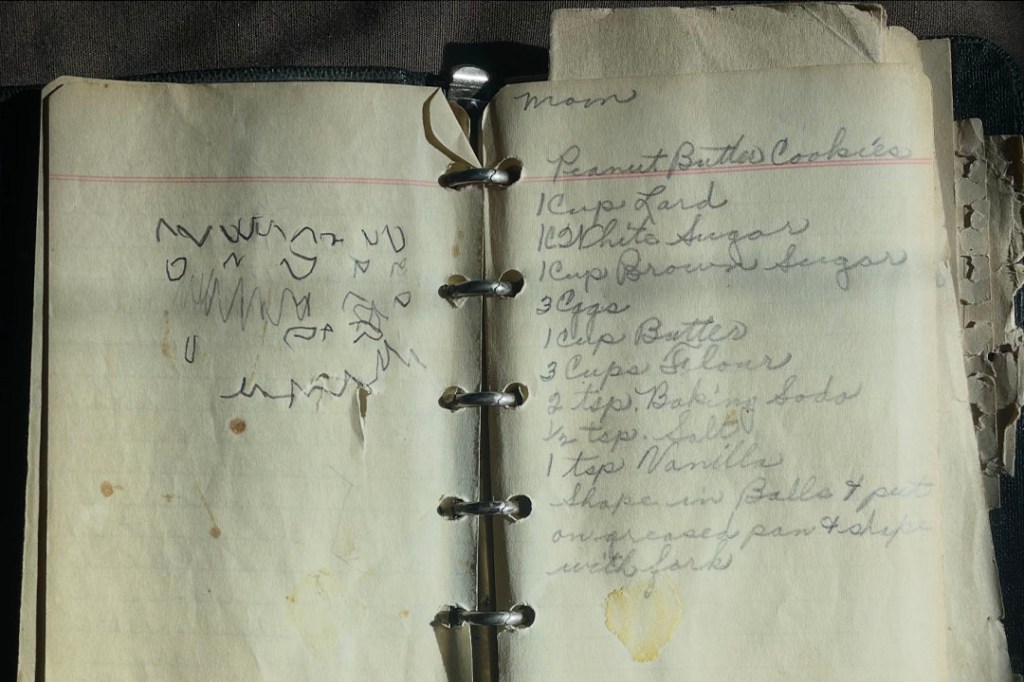 Mom
Peanut Butter Cookies
1 Cup Lard
White Sugar
1 Cup Brown Sugar
3 Eggs
1 Cup Butter
3 Cups Flour
2 tsp. Baking Soda
1/2 tsp. Salt
1 tsp Vanilla
Shape in Balls & put
on greased pan &
with fork